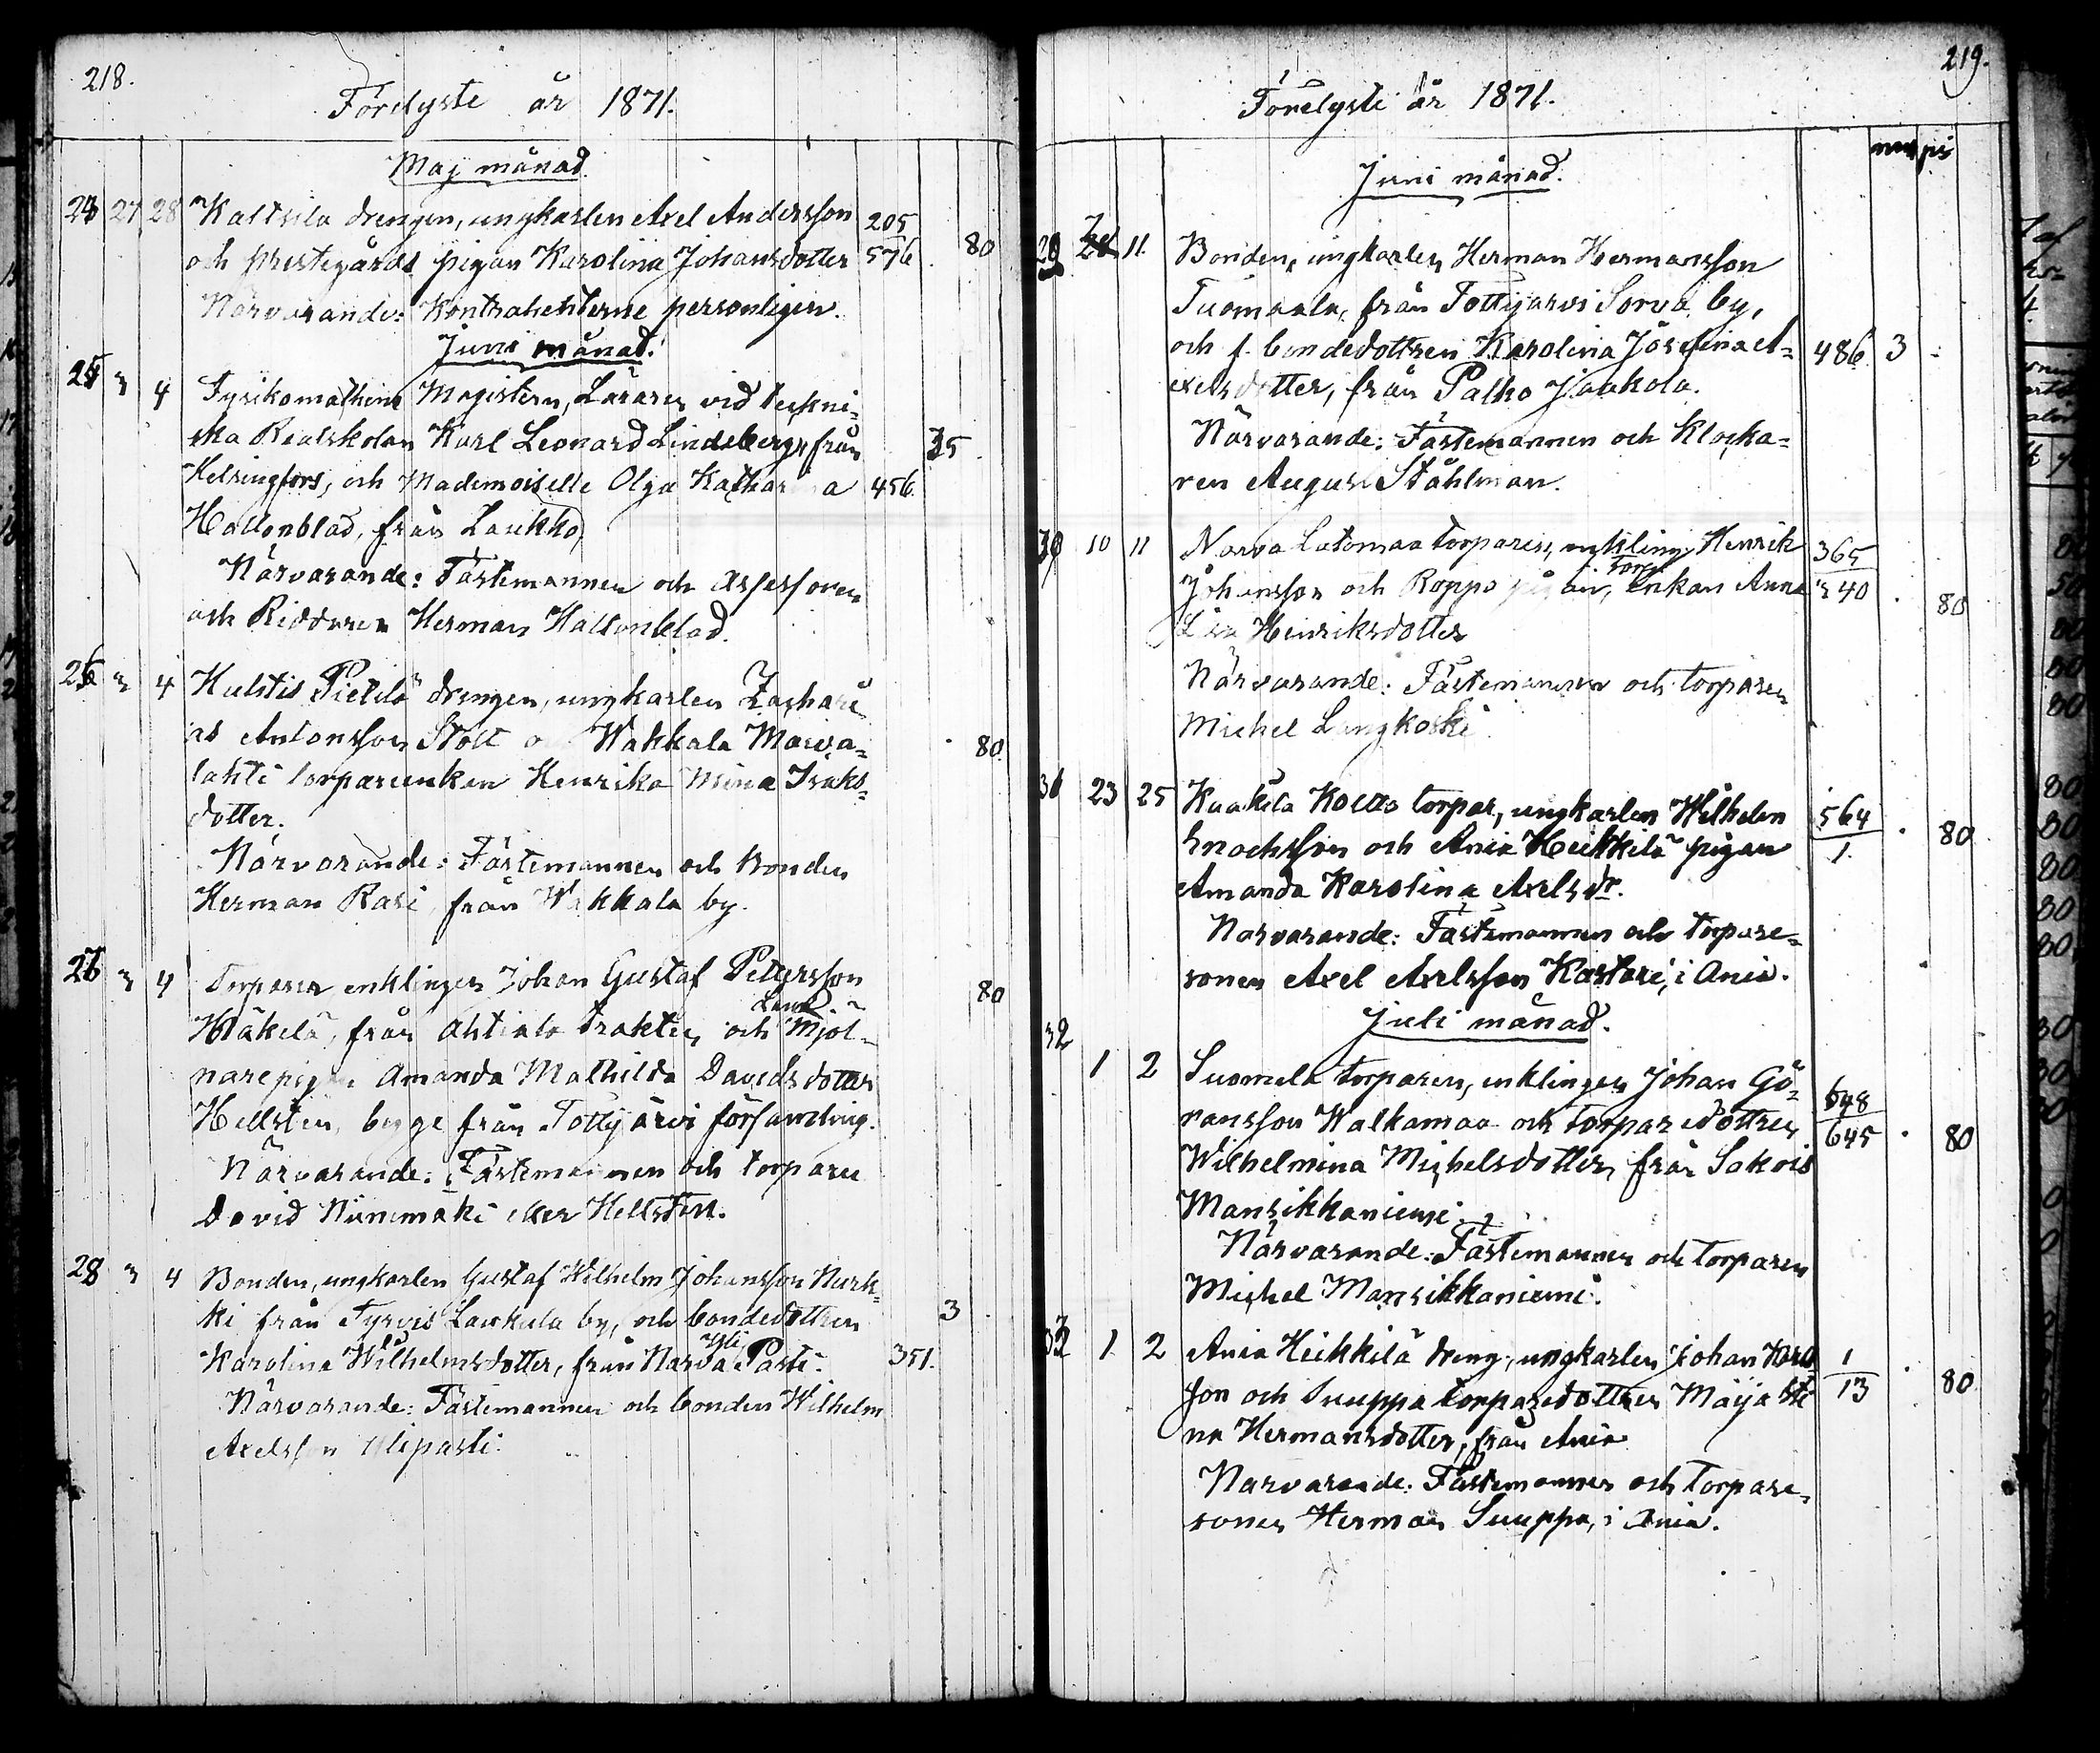 218.
Förelyste år 1871.
Maj månad.
24 27 28 Kaltsila drengen, ungkarlen Axel Andersson 205
och prestegårds pigan Karolina Johansdotter 576 . 80
Närvarande: Kontrahenterne personligen.
Juni månad.
25 " 4 Fysikomathem Magistern, Läraren vid tekni-
ska Realskolan Karl Leonard Lindeberg, från 35
Helsingfors, och Mademoiselle Olga Katharina 456.
Hallonblad, från Laukko,
Närvarande: Fästemannen och Assessoren
och Riddaren Herman Hallonblad.
26 " 4 Hulstis Pietilä drengen, ungkarlen Zachari
as Antonsson Stolt o Wakkala Marja- . 80.
lahti torpareenkan Henrika Mina Isaks-
dotter.
Närvarande: Fästemannen och Bonden
Herman Rasi, från Wakkala by.
27 " 4 Torparen enklingen Johan Gustaf Petersson 80
Mäkelä, från Ahtiala trakten och Mjöl-
narepigan Amanda Mathilda Davidsdotter
Hellstén, begge från Tottijärvi församling.
Närvarande: Fästemannen och torparen
David Niinimäki eller Hellstén.
28 " 4 Bonden, ungkarlen Gustaf Wilhelm Johansson Nurk-
ki från Tyrvis Laukula by, och bondedottren 3
Karolina Wilhelmsdotter, från Narva Yli Pasti. 351.
Närvarande: Fästemannen och bonden Wilhelm
Axelsson Ylipasti.
219.
Förelyste år 1871.
Juni månad.
29 11. Bonden, ungkarlen Herman Hermansson
Tuomaala, från Tottijärvi Sorva by,
och f. bondedottren Karolina Josefina A- 486. 3 -
xelsdotter, från Palho Jaakola.
Närvarande: Fästemannen och Klocka-
ren August Ståhlman.
30 10 11 Narva Latomaa torparen, enkling Henrik 365
Johansson och Roppo torp. enkan Anna " 40 . 80
Lisa Henriksdotter
Närvarande: Fästemannen och torparen
Michel Langkoski
31 23 25 Kaakila torpar, ungkarlen Wilhelm 564 . 80
Enochsson och Ania Heikkilä pigan 1.
Amanda Karolina Axelsdr.
Närvarande: Fästemannen och torpare-
sonen Axel Axelsson Kastari, i Ania.
Juli månad.
32
1 2 Suomela torparen, enklingen Johan Gö- 648
ransson Walkamaa och torparedottren 645 . 80
Wilhelmina Michelsdotter, från Sakois
Mansikkaniemi.
Närvarande: Fästemannen och torparen
Michel Mansikkaniemi.
33 1. 2 Ania Heikkilä dreng, ungkarlen Johan Karls 1
son och Suuppa torparedottren Maija Sti 13 . 80
na Hermansdotter, från Ania
Närvarande: Fästemannen och torpare-
sonen Herman Suuppa, i Ania.